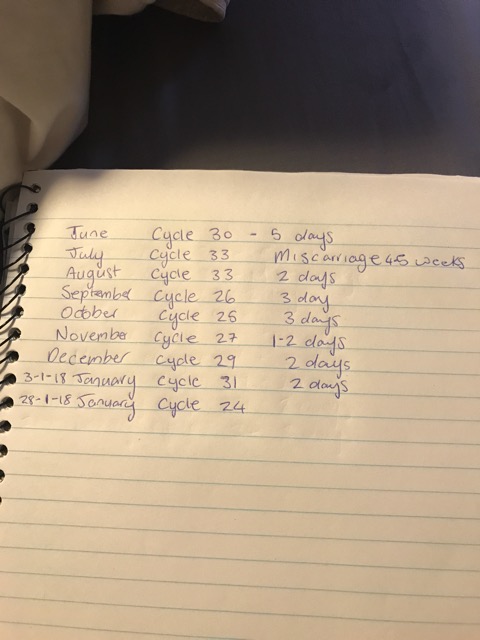 June Cycle 30 - 5 days
July Cycle 33 Miscarriage 45 weeks
August Cycle 33 2 days
September Cycle 26 3 day
October Cycle 25 3 days
November Cycle 27 1-2 days
December Cycle 29 2 days
3-1-18 January Cycle 31 2 days
28-1-18 January Cycle 24